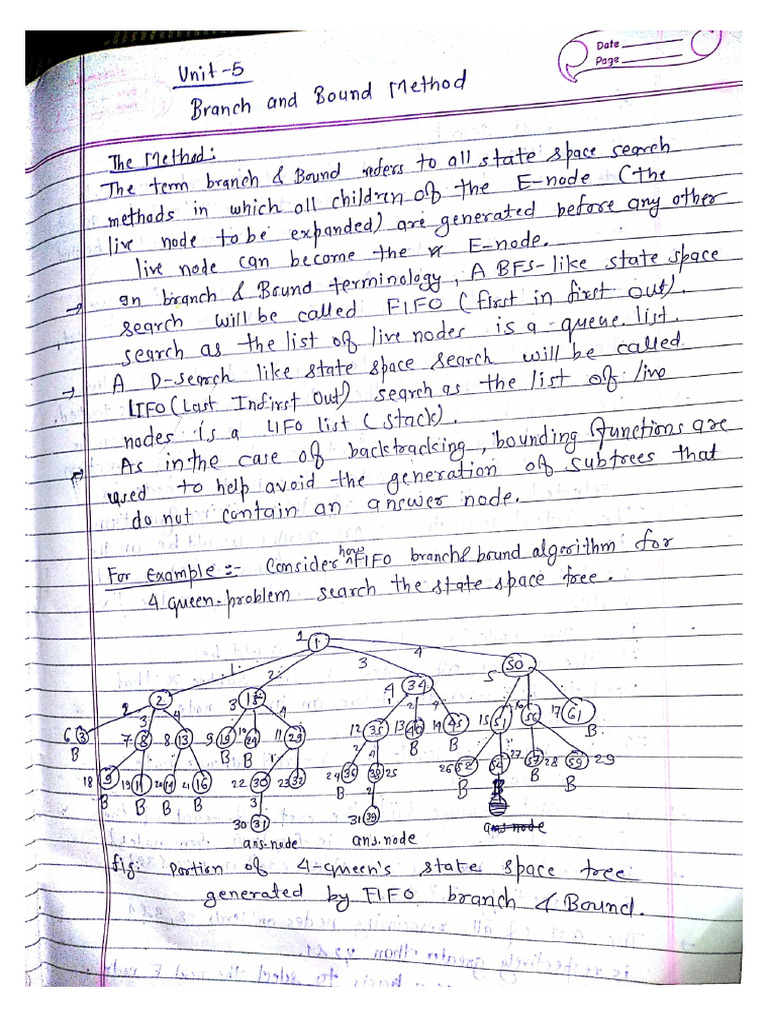 Date
Page
Unit-5
Branch and Bound Method
The Method:
The term branch & Bound refers to all state space search
methods in which all children of the E-node (the
live node to be expanded) are generated before any other
live node can become the E-node.
→ In branch & Bound terminology, A BFS-like state space
search will be called FIFO (first in first out).
search as the list of live nodes is a queue list.
→ A D-search like state space search will be called
LIFO (Last In first Out) search as the list of live
nodes is a LIFO list (stack).
→ As in the case of backtracking, bounding functions are
used to help avoid the generation of subtrees that
do not contain an answer node.
For Example :- Consider how FIFO branch & bound algorithm for
4 queen-problem search the state space tree.
1 1
1 2 3 4
2 2 3 18 4 34 5 50
2 3 4
6 3 7 8 8 13 9 19 10 24 11 29 12 35 13 40 14 45 15 51 16 56 17 61
B B B B B B
18 9 19 11 20 14 21 16 22 30 23 32 24 36 38 25 26 52 54 27 57 28 59 29
B B B B B B B B
30 31 31 39
ans.node ans.node ans node
fig: Portion of 4-queen's state space tree
generated by FIFO branch & Bound.